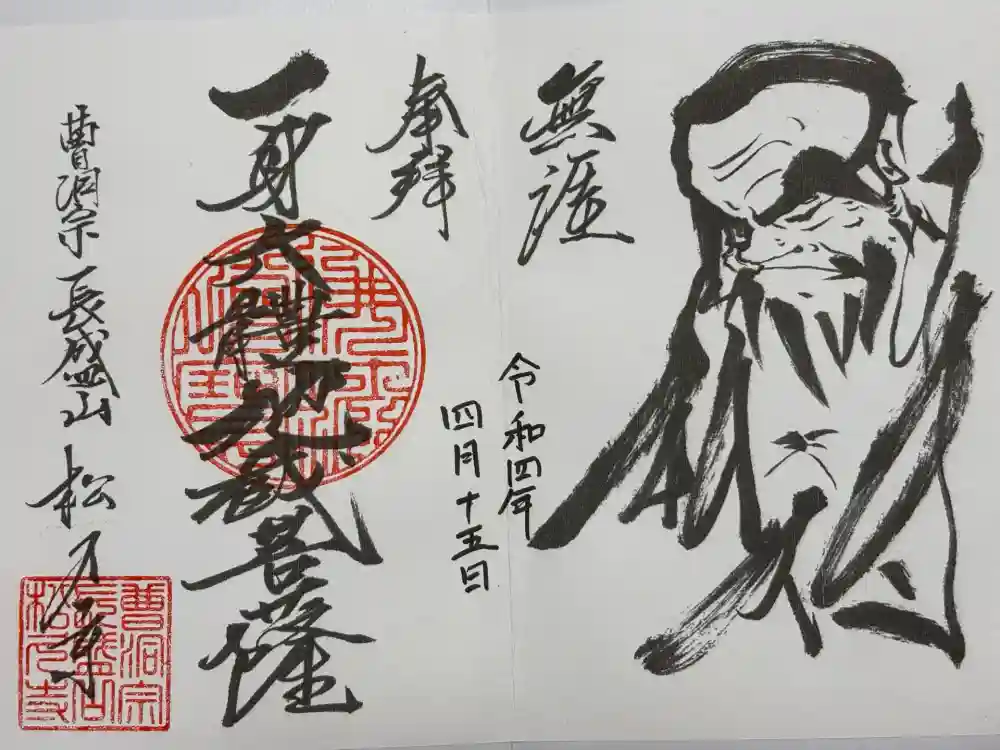 無涯
令和四年
四月十五日
奉拝
一身六體地蔵菩薩
曹洞宗 長盛山 松
曹洞宗
長盛山